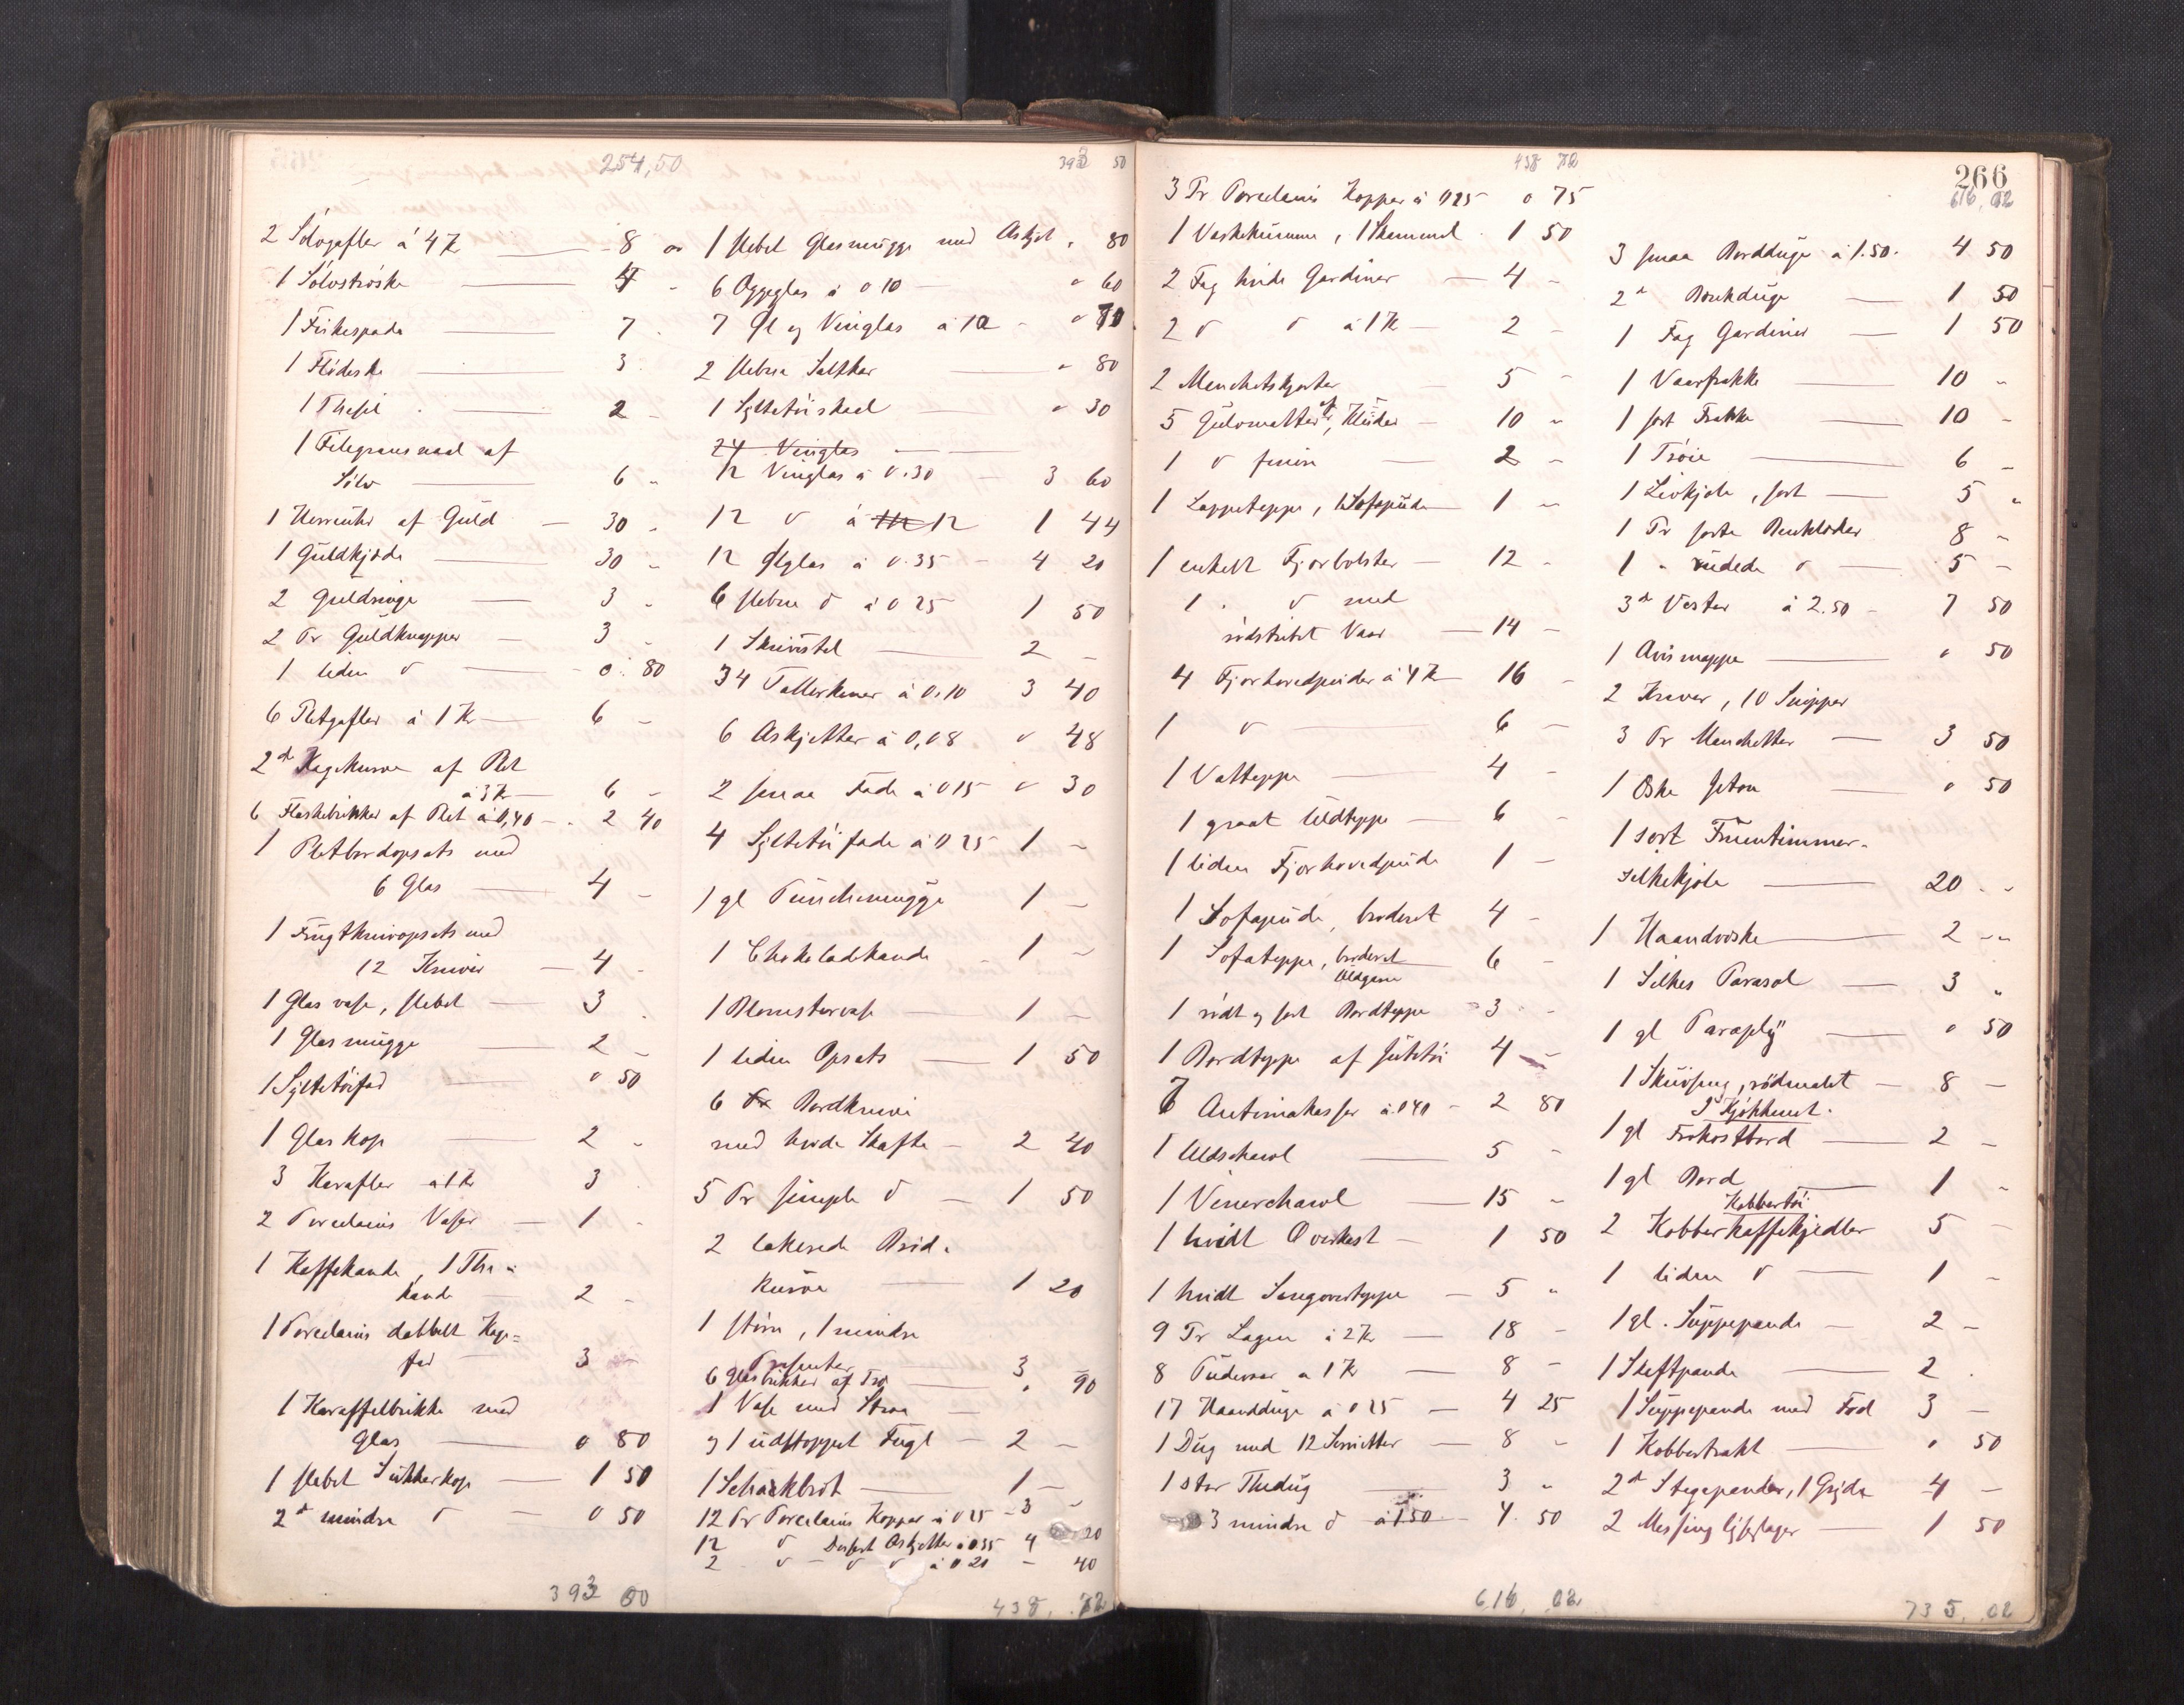 254,50
2 Sölvgafler á 4 Kr — 8 "
1 Sölvströske — 4 -
1 Fiskespade — 7 -
1 Flödeske — 3
1 Thesil — 2 -
1 Filegransnaal af
Sölv — 6 -
1 Herreuhr af Guld — 30 -
1 Guldkjæde — 30 -
2 Guldringe — 3 -
2 Pr Guldknapper — 3 -
1 liden d — 0 80
6 Pletgafler á 1 Kr — 6 -
2 d Kagekurve af Plet
á 3 Kr — 6 -
6 Flaskebrikker af Plet á 0,40 — 2 40
1 Pletbordopsats med
6 Glas — 4 -
1 Frugtknivopsats med
12 Knive — 4 -
1 Glasvase, slebet — 3 -
1 Glasmugge — 2 -
1 Syltetöifad — 0 50
1 Glaskop — 2 -
3 Karafler á 1 Kr 3 -
2 Porcelains Vaser — 1 -
1 Kaffekande, 1 The-
kande — 2 -
1 Porcelains dobbelt Kage-
fad — 3 -
1 Karaffelbrikke med
Glas — 0 80
1 slebet Sukkerkop — 1 50
2 d mindre d — 0 50
393 00
393 50
1 slebet Glasmugge med Askjet " 80
6 Öggeglas á 0 10 — " 60
7 Öl og Vinglas á 10 - " 70
2 slebne Saltkar — " 80
1 Syltetöiskaal — " 30
24 Vinglas
12 Vinglas á 0.30 — 3 60
12 d á 12 12 1 44
12 Ölglas á 0.35 — 4 20
6 slebne d á 0 25 1 50
1 Skrivestel — 2 -
34 Tallerkener á 0.10 3 40
6 Askjetter á 0,08 0 48
2 smaa Fade á 0 15 0 30
4 Syltetöifade á 0 25 1 -
1 gl Punchemugge 1 -
1 Chokoladekande — 1 -
1 Blomstervase — 1 -
1 liden Opsats — 1 50
6 Pr Bordknive
med hvide Skafte — 2 40
5 Pr simple d — 1 50
2 lakerede Bröd-
kurve — 1 20
1 större, 1 mindre
Præsenter — 3 -
6 Glasbrikker af Træ — " 90
1 Vase med Straa
og 1 udstoppet Fugl — 2 -
1 Schackbræt — 1 -
12 Pr Porcelains Kopper á 0 25 — 3 -
12 d Desert Askjetter á 0 35 4 20
2 d - d d á 0 20 - 40
438, 72
438 72
3 Pr Porcelains Kopper á 0 25 0 75
1 Vaskekumme, 1 Skammel 1 50
2 Fag hvide Gardiner — 4 -
2 d d á 1 Kr — 2 -
2 Manchetskjorter — 5 -
5 Gulvmatter af Kluder — 10 -
1 d finere — 2 -
1 Lappeteppe, 1 Sofapude — 1 -
1 enkelt Fjærbolster — 12 -
1 d med
rödstribet Vaar — 14 -
4 Fjærhovedpuder á 4 Kr 16 -
1 d — 6 -
1 Vatteppe — 4 -
1 graat Uldteppe — 6 -
1 liden Fjærhovedpude 1 -
1 Sofapude, broderet 4 -
1 Sofateppe, broderet
Uldgarn 6 -
1 rödt og sort Bordteppe 3 -
1 Bordteppe af Jutetöi 4 -
7 Antimakasser á 0 40 — 2 80
1 Uldschawl — 5 -
1 Vienerchawl — 15 -
1 hvidt Overkast — 1 50
1 hvidt Sengeovertyppe — 5 "
9 Pr Lagen á 2 Kr — 18 -
8 Pudevar á 1 Kr — 8 -
17 Haandduge á 0 25 — 4 25
1 Dug med 12 Servietter — 8 -
1 stor Thedug — 3 "
3 mindre d á 1.50 — 4 50
616, 02
266
616, 02
3 smaa Bordduge á 1.50. 4 50
2 d Brukduge — 1 50
1 Fag Gardiner — 1 50
1 Vaarfrakke — 10 -
1 sort Frakke — 10 -
1 Tröie — 6 -
1 Livkjole, sort — 5 "
1 Pr sorte Benklæder 8 -
1 " rudede d — 5 -
3 d Vester á 2.50 — 7 50
1 Avismappe — " 50
2 Kraver, 10 Snipper
3 Pr Manchetter — 3 50
1 Öske Jeton — " 50
1 sort Fruentimmer-
silkekjole — 20 -
1 Haandvæske — 2 -
1 Silkes Parasol — 3 "
1 gl Paraply — " 50
1 Skuvseng, rödmalet — 8 -
I Kjökkenet.
1 gl Frokostbord — 2 -
1 gl Bord — 1 -
Kobbertöi
2 Kobberkaffekjedler 5 -
1 liden d — 1 -
1 gl. Suppepande — 2 -
1 Skaftpande — 2 -
1 Suppepande med Fod 3 -
1 Kobbertrakt — " 50
2 d Stegepander, 1 Gryde 4 -
2 Messing lysestager — 1 50
735, 02